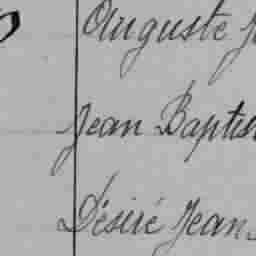 Auguste
Jean Baptis
Désiré Jean